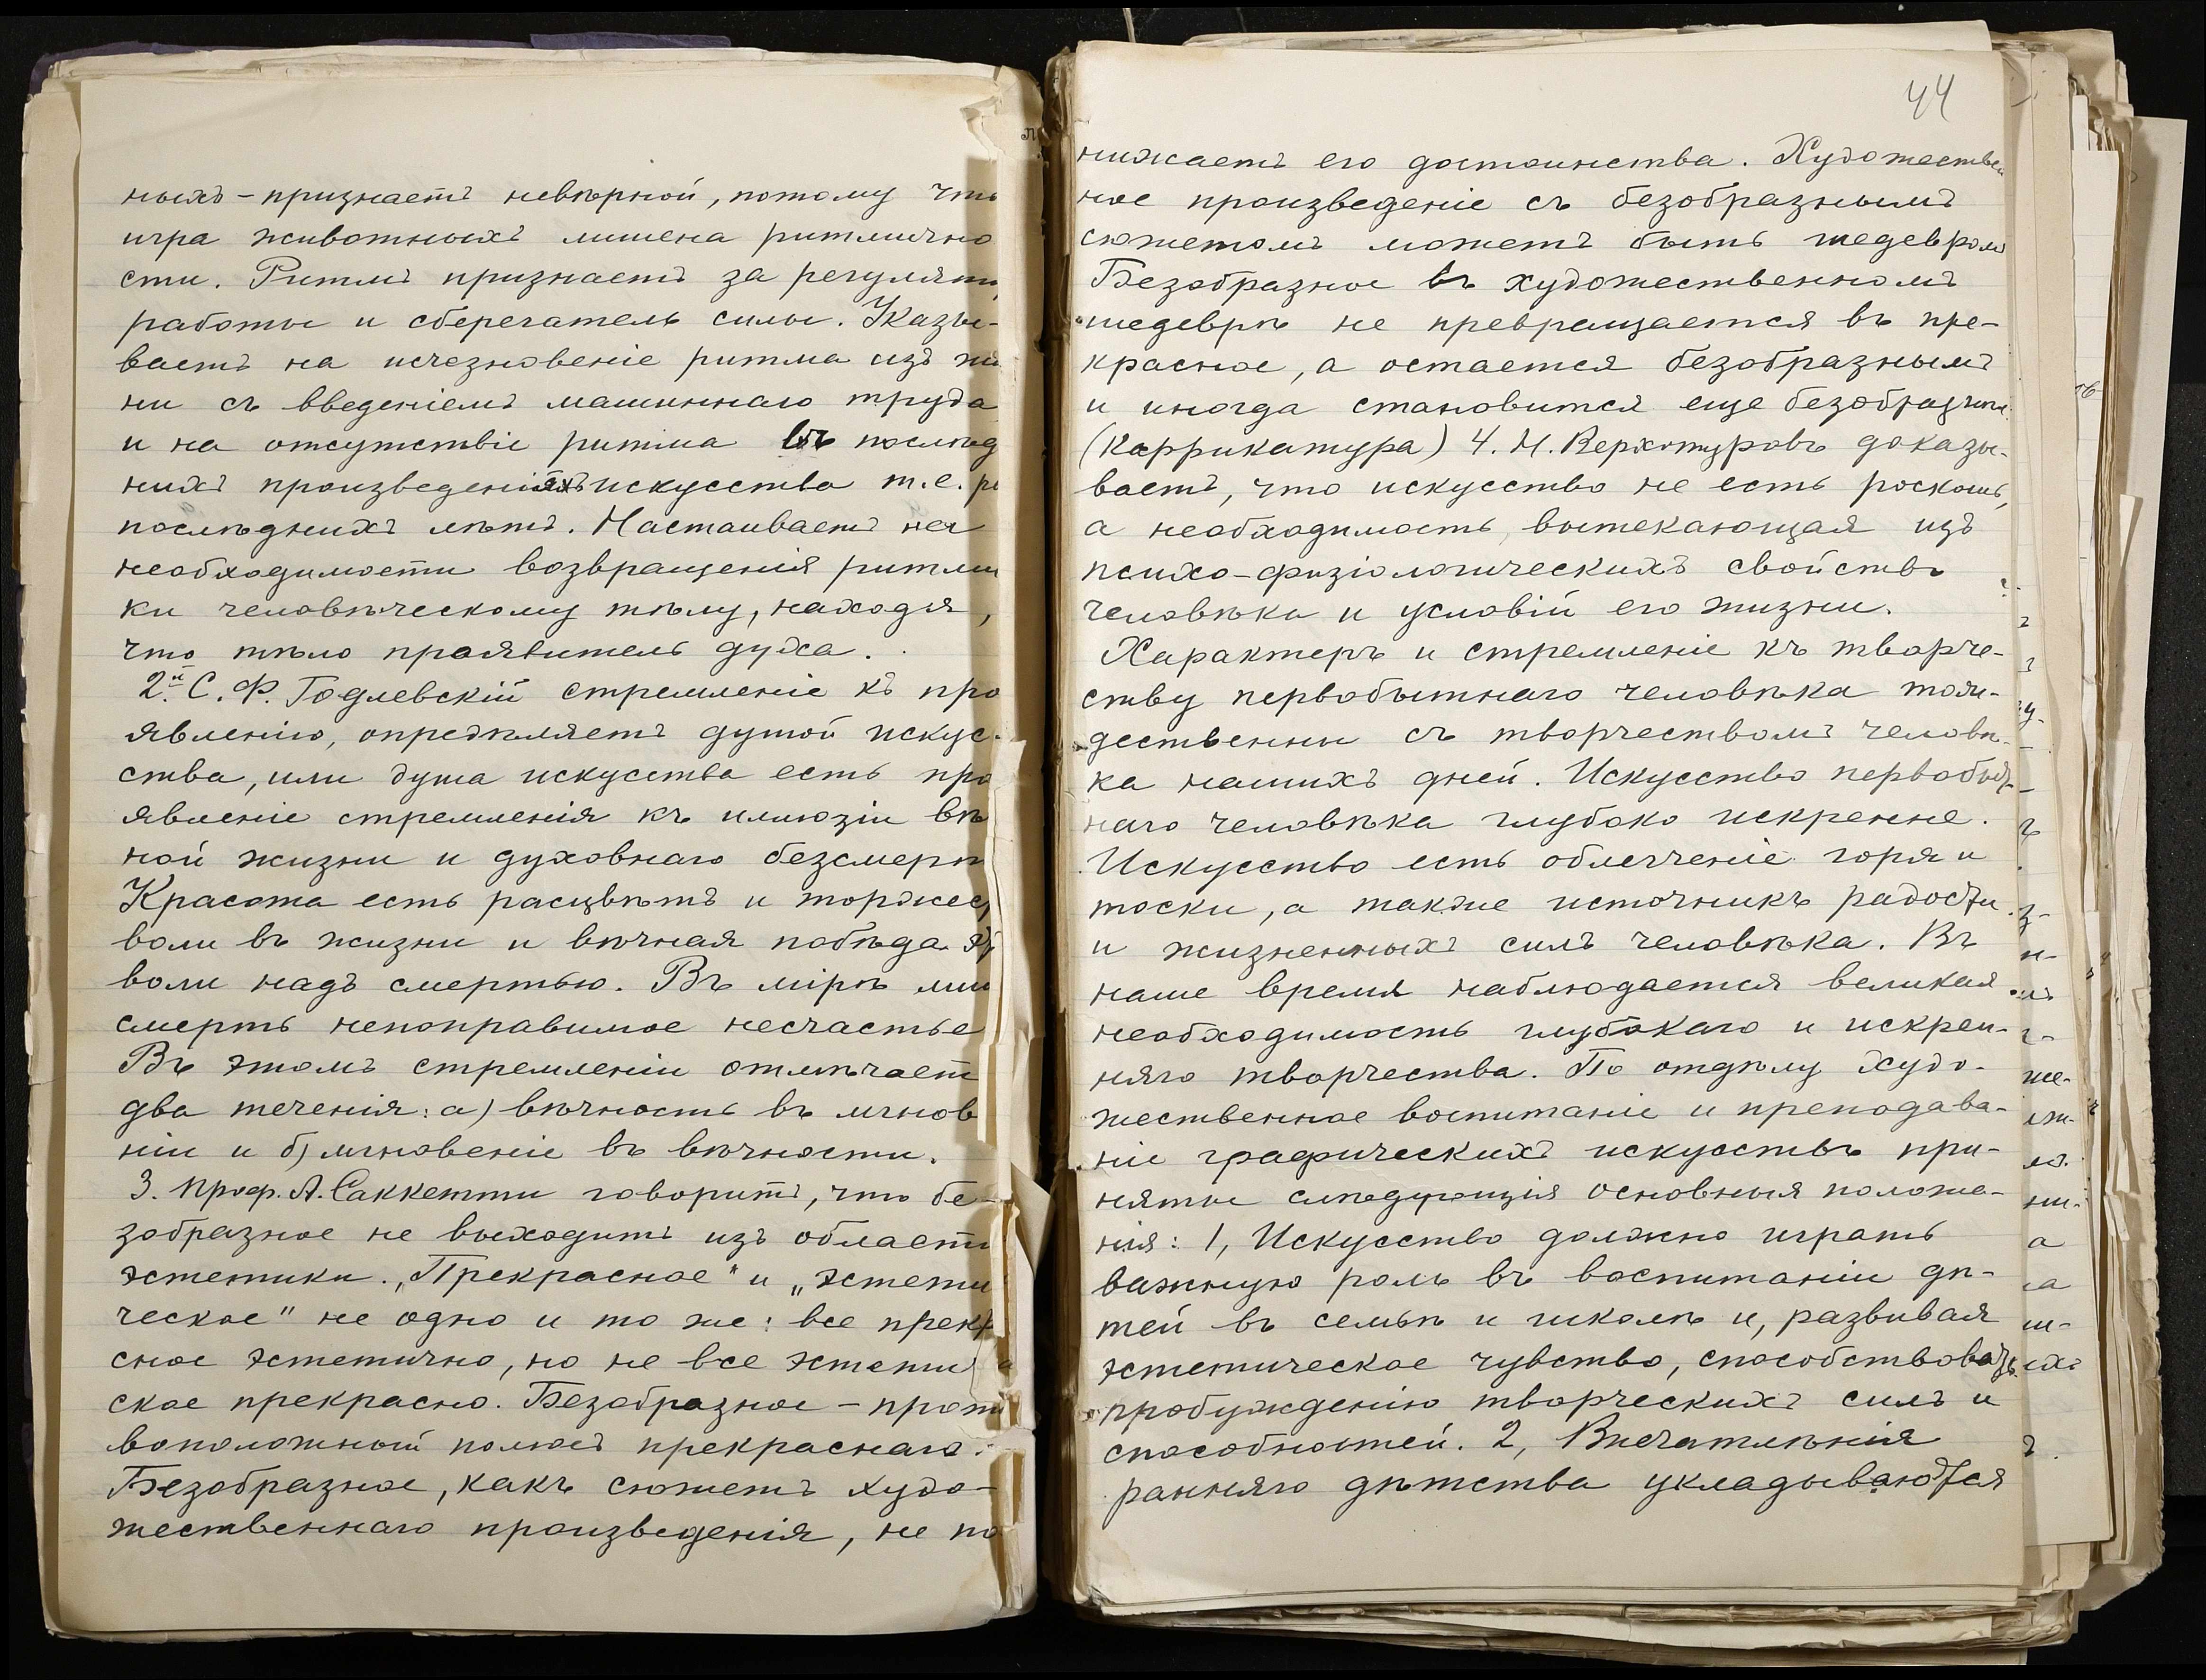 ныхъ - признаетъ невѣрной, потому что
игра животныхъ лишена ритмично
сти. Ритмъ признаетъ за регулят
работы и сберегатель силы. Указы-
ваетъ на исчезновеніе ритма изъ жи
ни съ введеніемъ машиннаго труда
и на отсутствіе ритма въ послѣд
нихъ произведеніяхъ искусства т.е.
послѣднихъ лѣтъ. Настаиваетъ на
необходимости возвращенія ритми
ки человѣческому тѣлу, находя,
что тѣло проявитель духа.
2й. С. Ф. Годлевскій стремленіе къ про
явленію, опредѣляетъ душой искус-
ства, или душа искусства есть про
явленіе стремленія къ иллюзіи вѣ
ной жизни и духовнаго безсмерт
Красота есть расцвѣтъ и торжес
воли въ жизни и вѣчная побѣда
воли надъ смертью. Въ мірѣ
смерть непоправимое несчастье
Въ этомъ стремленіи отмѣчает
два теченія: а) вѣчность въ мгнов
ніи и б) мгновеніе въ вѣчности.
3. Проф. А. Саккетти говоритъ, что бе-
зобразное не выходитъ изъ област
эстетики. „Прекрасное" и „эстети
ческое" не одно и то же: все прекр
сное эстетично, но не все эстети
ское прекрасно. Безобразное - проти
воположный полюсъ прекраснаго.
Безобразное, какъ сюжетъ худо-
жественнаго произведенія, не по
44
нижаетъ его достоинства. Художествен
ное произведеніе съ безобразнымъ
сюжетомъ можетъ быть шедевромъ
Безобразное въ художественномъ
шедеврѣ не превращается въ пре-
красное, а остается безобразнымъ
и иногда становится еще безобразнѣе
(Каррикатура) 4. Н. Верхотуровъ доказы-
ваетъ, что искусство не есть роскошь,
а необходимость, вытекающая изъ
психо-физіологическихъ свойствъ
человѣка и условій его жизни.
Характеръ и стремленіе къ творче-
ству первобытнаго человѣка тож-
дественны съ творчествомъ человѣ-
ка нашихъ дней. Искусство первобыт-
наго человѣка глубоко искренне.
Искусство есть облегченіе горя и
тоски, а также источникъ радости
и жизненныхъ силъ человѣка. Въ
наше время наблюдается великая
необходимость глубокаго и искрен-
няго творчества. По отдѣлу Худо-
жественное воспитаніе и преподава-
ніе графическихъ искусствъ при-
няты слѣдующія основныя положе-
нія: 1, Искусство должно играть
важную роль въ воспитаніи дѣ-
тей въ семьѣ и школѣ и, развивая
эстетическое чувство, способствовать
пробужденію творческихъ силъ и
способностей. 2, Впечатлѣнія
ранняго дѣтства укладываются